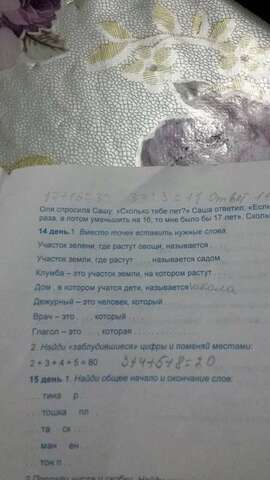 33 : 3 = 11 Ответ 11
Оля спросила Сашу: «Сколько тебе лет?» Саша ответил: «Если
раза, а потом уменьшить на 16, то мне было бы 17 лет». Сколь
14 день. 1. Вместо точек вставить нужные слова:
Участок зелени, где растут овощи, называется . . .
Участок земли, где растут . . . , называется садом.
Клумба – это участок земли, на котором растут . . .
Дом , в котором учатся дети, называется школа
Дежурный – это человек, который . . .
Врач – это . . . , который . . .
Глагол – это . . . , которая . . .
2. Найди «заблудившиеся» цифры и поменяй местами:
2 + 3 + 4 + 5 = 80 3+4+5+8=20
15 день 1. Найди общее начало и окончание слов:
. . . тина р . . .
. . . тошка пл . . .
. . . та ск . . .
. . . ман ен . . .
. . . ток п . . .